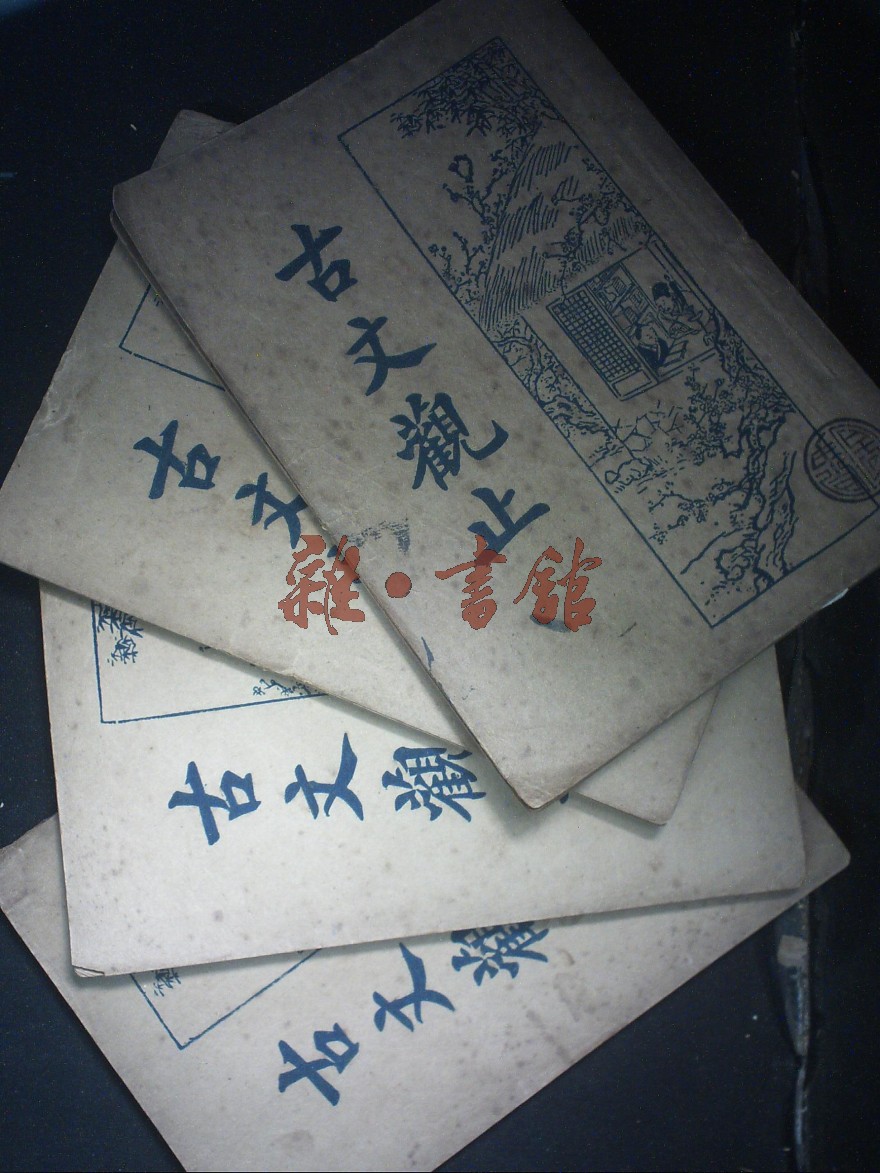 古文觀止
古文
雜·書館
古文觀
古文觀